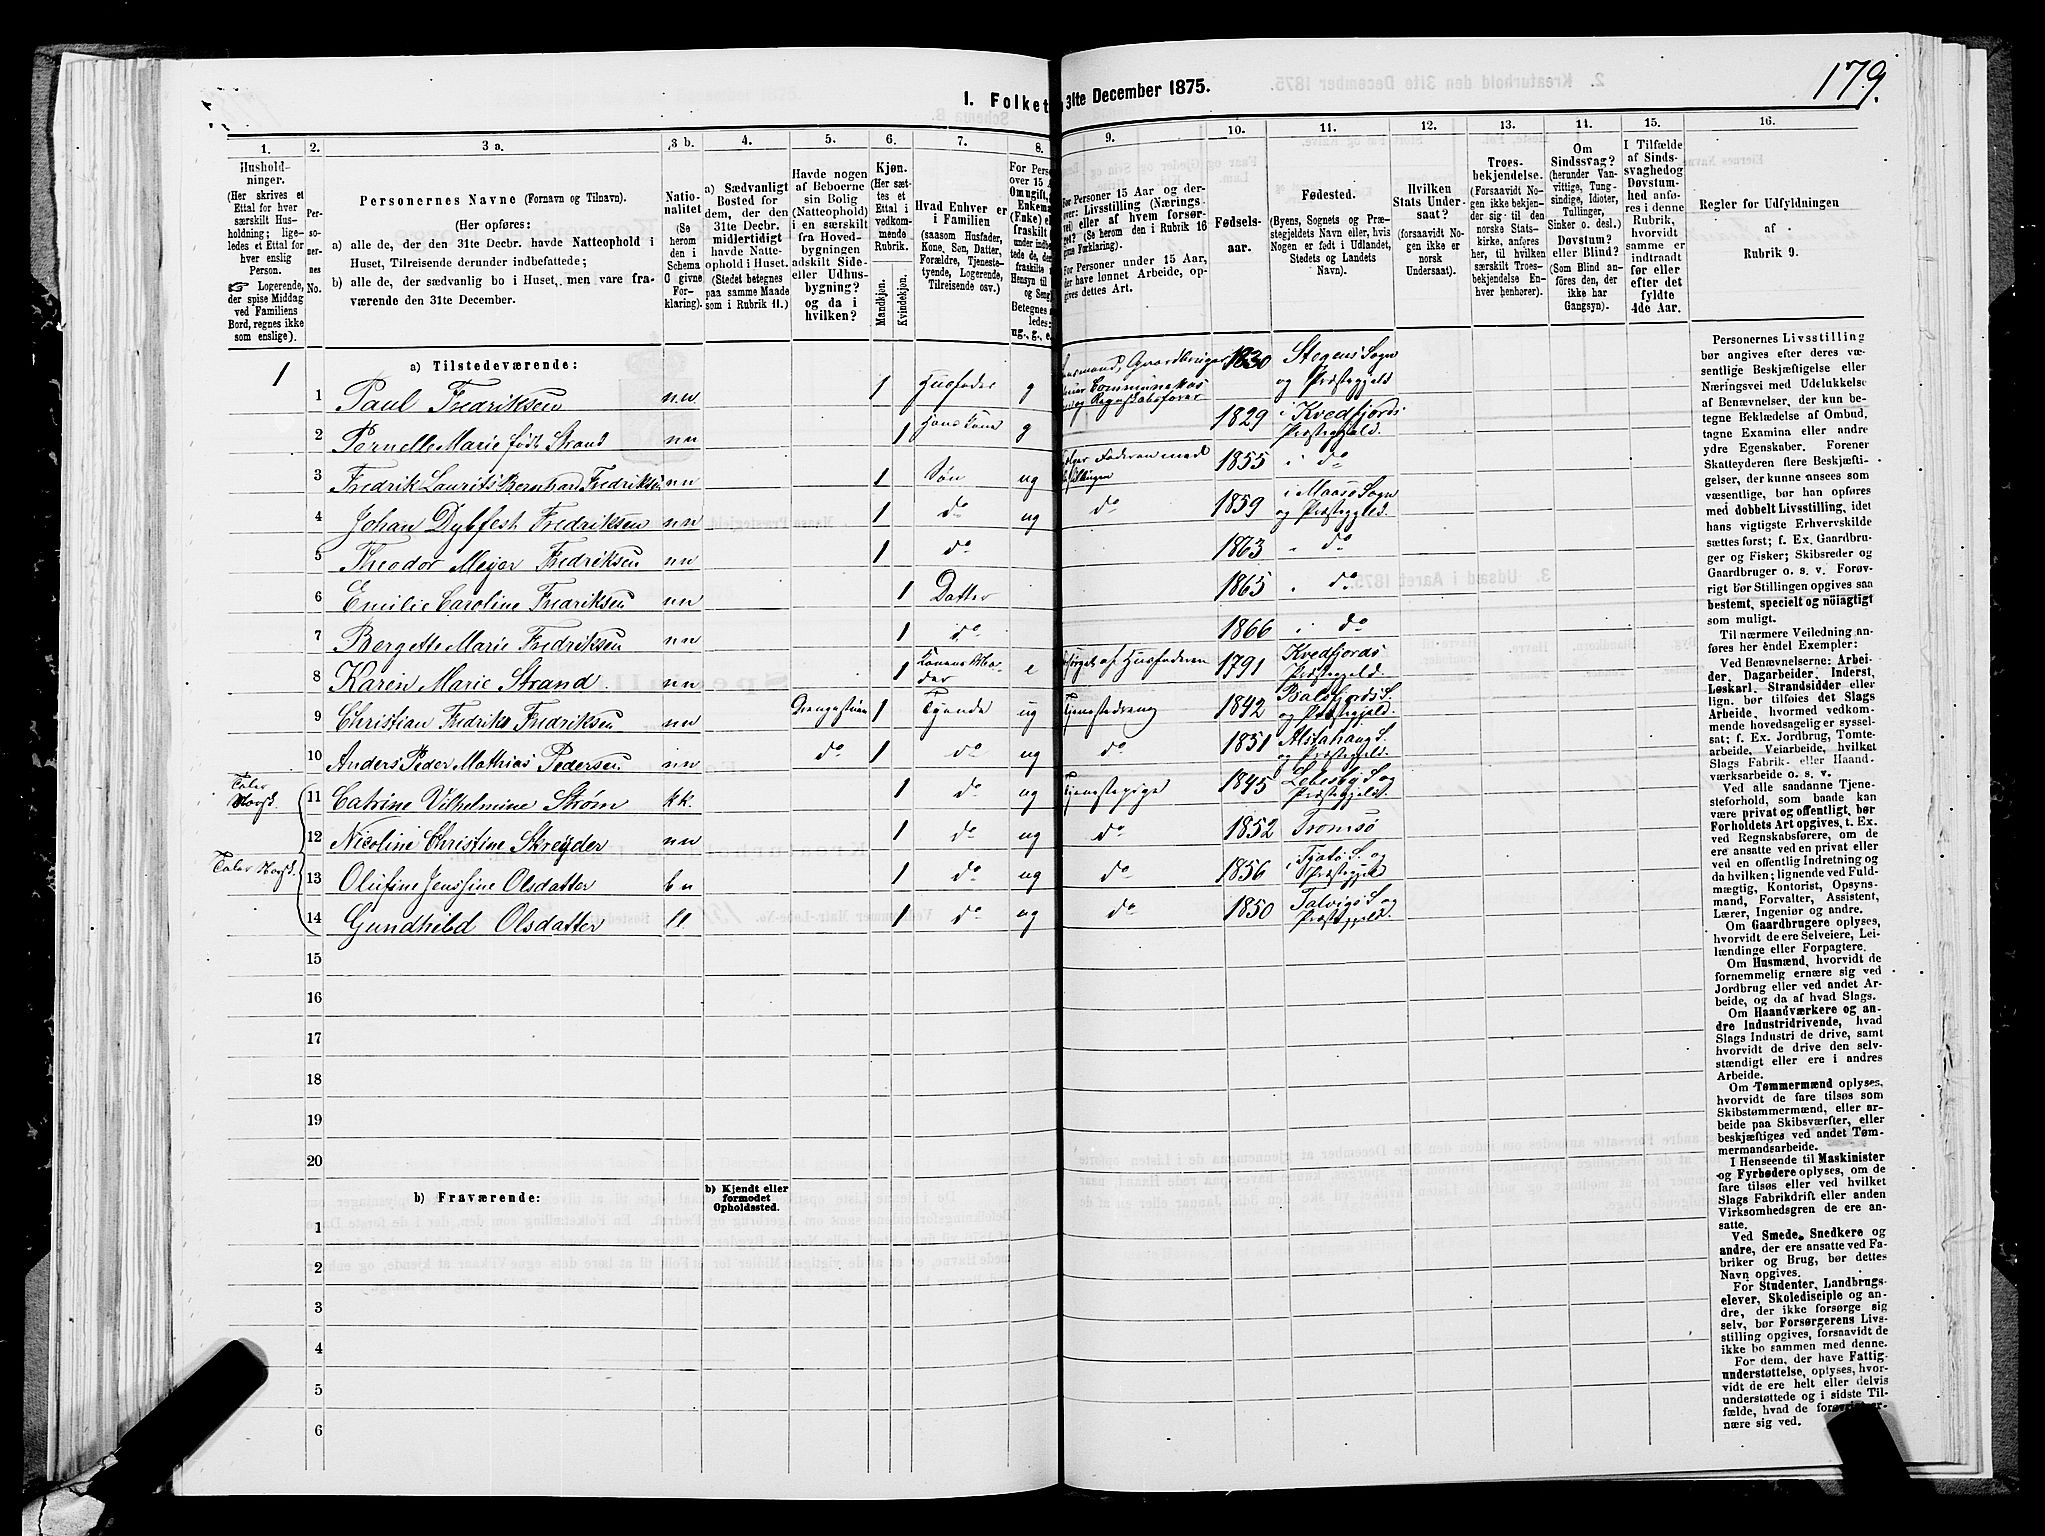 179.
I. Folket
31te December 1875.
1.
2.
3 a.
3 b.
4.
5.
6.
7.
8.
9.
10.
11.
12.
13.
14.
15.
16.
Hushold-
ninger.
(Her skrives et
Ettal for hver
særskilt Hus-
holdning; lige-
ledes et Ettal for
hver enslig
Person.
Logerende,
der spise Middag
ved Familiens
Bord, regnes ikke
som enslige).
Per-
so-
ner-
nes
No.
Personernes Navne (Fornavn og Tilnavn).
(Her opføres:
a) alle de, der den 31te Decbr. havde Natteophold i
Huset, Tilreisende derunder indbefattede;
b) alle de, der sædvanlig bo i Huset, men vare fra-
værende den 31te December.
Natio-
nalitet
(Se
herom
den i
Schema
C givne
For-
klaring).
a) Sædvanligt
Bosted for
dem, der den
31te Decbr.
midlertidigt
havde Natte-
ophold i Huset.
(Stedet betegnes
paa samme Maade
som i Rubrik 11.)
Havde nogen
af Beboerne
sin Bolig
(Natteophold)
i en særskilt
fra Hoved-
bygningen
adskilt Side-
eller Udhus-
bygning?
og da i
hvilken?
Kjøn.
(Her sæt-
tes et
Ettal i
vedkom-
mende
Rubrik.
Mandkjøn.
Kvindekjøn.
Hvad Enhver er
i Familien
(saasom Husfader,
Kone, Søn, Datter,
Forældre, Tjeneste-
tyende, Logerende,
Tilreisende osv.)
For Personer 15 Aar og der-
over: Livsstilling (Nærings-
vei) eller af hvem forsør-
get? (Se herom den i Rubrik 16
givne Forklaring).
For Personer under 15 Aar,
der have lønnet Arbeide, op-
gives dettes Art.
Fødsels-
aar.
Fødested.
(Byens, Sognets og Præ-
stegjeldets Navn eller, hvis
Nogen er født i Udlandet,
Stedets og Landets
Navn).
Hvilken
Stats Under-
saat?
(forsaavidt No-
gen ikke er
norsk
Undersaat).
Troes-
bekjendelse.
(Forsaavidt No-
gen ikke bekjen-
der sig til den
norske Stats-
kirke, anføres
her, til hvilken
særskilt Troes-
bekjendelse En-
hver henhører).
Om
Sindssvag?
(herunder Van-
vittige, Tung-
sindige, Idioter,
Tullinger,
Sinker o. desl.)
Døvstum?
eller Blind?
(Som Blind an-
føres den, der
ikke har
Gangsyn).
I Tilfælde
af Sinds-
svaghed og
Døvstum-
hed anfø-
res i denne
Rubrik,
hvorvidt
samme er
indtraadt
før eller
efter det
fyldte
4de Aar.
Regler for Udfyldningen
af
Rubrik 9.
a) Tilstedeværende:
1 1 Paul Fredriksen n.n 1 Husfader g 1830 Stegens Sogn og Præstegjeld
2 Pernelle Marie født Strand nn 1 Hans Kone g 1829 i Kvedfjords Præstegjeld.
3 Fredrik Laurits Bernhard Fredriksen nn 1 Søn ug 1855 i do
4 Johan Dybfest Fredriksen nn 1 do ug do 1859 i Maasø Sogn og Præstegjeld.
5 Theodor Mejer Fredriksen nn 1 do 1863 " do
6 Emilie Caroline Fredriksen nn 1 Datter 1865 " do
7 Bergette Marie Fredriksen nn 1 do 1866 i do
8 Karen Marie Strand nn 1 Konens Moder e forsørges af Husfaderen 1791 Kvedfjords Præstegjeld.
9 Christian Fredriks Fredriksen nn Drengestuen 1 Tyende ug Tjenestedreng 1842 Balsfjords S. og Præstegjeld
10 Anders Peder Mathias Pedersen nn do 1 do ug do 1851 Alstahaug S. og Præstegjeld.
Taler Norsk. 11 Catrine Vilhelmine Strøm kk. 1 do ug Tjenestepige 1845 i Lebesby S og Præstegjeld.
12 Nicoline Christine Skreyder nn 1 do ug do 1852 Tromsø
Taler Norsk. 13 Olufine Jenssine Olsdatter bn 1 do ug do 1856 i Tjøtø S. og Præstegjeld
14 Gundhild Olsdatter ll. 1 do ug do 1850 Talvigs S og Præstegjeld.
15
16
17
18
19
20
b) Fraværende:
b) Kjendt eller
formodet
Opholdssted.
1
2
3
4
5
6
Personernes Livsstilling
bør angives efter deres væ-
sentlige Beskjæftigelse eller
Næringsvei med Udelukkelse
af Benævnelser, der kun be-
tegne Beklædelse af Ombud,
tagne Examina eller andre
ydre Egenskaber. Forener
Skatteyderen flere Beskjæfti-
gelser, der kunne ansees som
væsentlige, bør han opføres
med dobbelt Livsstilling, idet
hans vigtigste Erhvervskilde
sættes først; f. Ex. Gaardbru-
ger og Fisker; Skibsreder og
Gaardbruger o. s. v. Forøv-
rigt bør Stillingen opgives saa
bestemt, specielt og nöiagtigt
som muligt.
Til nærmere Veiledning an-
føres her endel Exempler:
Ved Benævnelserne: Arbei-
der, Dagarbeider, Inderst,
Løskarl, Strandsidder eller
lign. bør tilføies det Slags
Arbeide, hvormed vedkom-
mende hovedsagelig er syssel-
sat; f. Ex. Jordbrug, Tomte-
arbeide, Veiarbeide, hvilket
Slags Fabrik- eller Haand-
værksarbeide o. s. v.
Ved alle saadanne Tjene-
steforhold, som baade kan
være privat og offentligt, bør
Forholdets Art opgives, t. Ex.
ved Regnskabsførere, om de
ere ansatte ved en privat eller
ved en offentlig Indretning og
da hvilken; lignende ved Fuld-
mægtig, Kontorist, Opsyns-
mand, Forvalter, Assistent,
Lærer, Ingeniør og andre.
Om Gaardbrugere oplyses,
hvorvidt de ere Selveiere, Lei-
lændinge eller Forpagtere.
Om Husmænd, hvorvidt de
fornemmelig ernære sig ved
Jordbrug eller ved andet Ar-
beide, og da af hvad Slags.
Om Haandværkere og an-
dre Industridrivende, hvad
Slags Industri de drive, samt
hvorvidt de drive den selv-
stændigt eller ere i andres
Arbeide.
Om Tømmermænd oplyses,
hvorvidt de fare tilsøs som
Skibstømmermænd, eller ar-
beide paa Skibsværfter, eller
beskjæftiges ved andet Tøm-
mermandsarbeide.
I Henseende til Maskinister
og Fyrbødere oplyses, om de
fare tilsøs eller ved hvilket
Slags Fabrikdrift eller anden
Virksomhedsgren de ere an-
satte.
Ved Smede, Snedkere og
andre, der ere ansatte ved Fa-
briker og Brug, bør dettes
Navn opgives.
For Studenter, Landbrugs-
elever, Skoledisciple og an-
dre, der ikke forsørge sig
selv, bør Forsørgerens Livs-
stilling opgives, forsaavidt de
ikke bo sammen med denne.
For dem, der have Fattig-
understøttelse, oplyses, hvor-
vidt de ere helt eller delvis
understøttede og i sidste Til-
fælde, hvad de forøvrigt er-
nære sig ved.